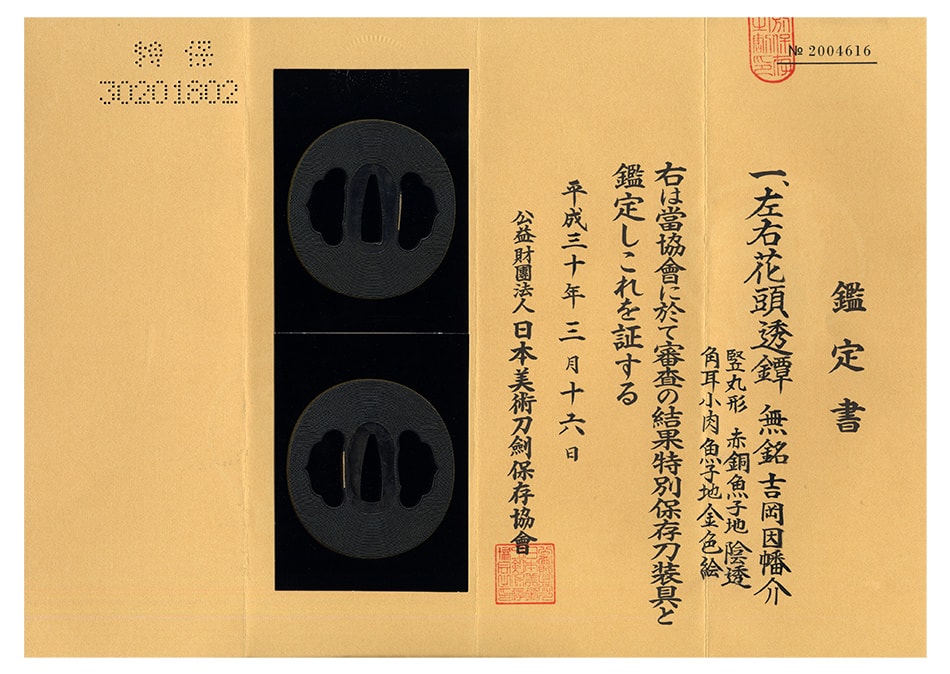 № 2004616
鑑定書
一、左右花頭透鐔 無銘 吉岡因幡介
竪丸形 赤銅魚子地 陰透
角耳小肉 魚子地 金色絵
右は當協會に於て審査の結果特別保存刀装具と
鑑定しこれを証する
平成三十年三月十六日
公益財團法人 日本美術刀劍保存協會
特保
30201802